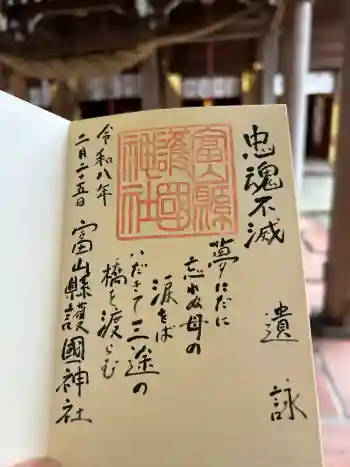 忠魂不滅
遺詠
夢にだに
忘れぬ母の
涙をば
いだきて三途の
橋を渡らむ
富山縣護國神社
令和八年
二月二十五日
富山縣護國神社